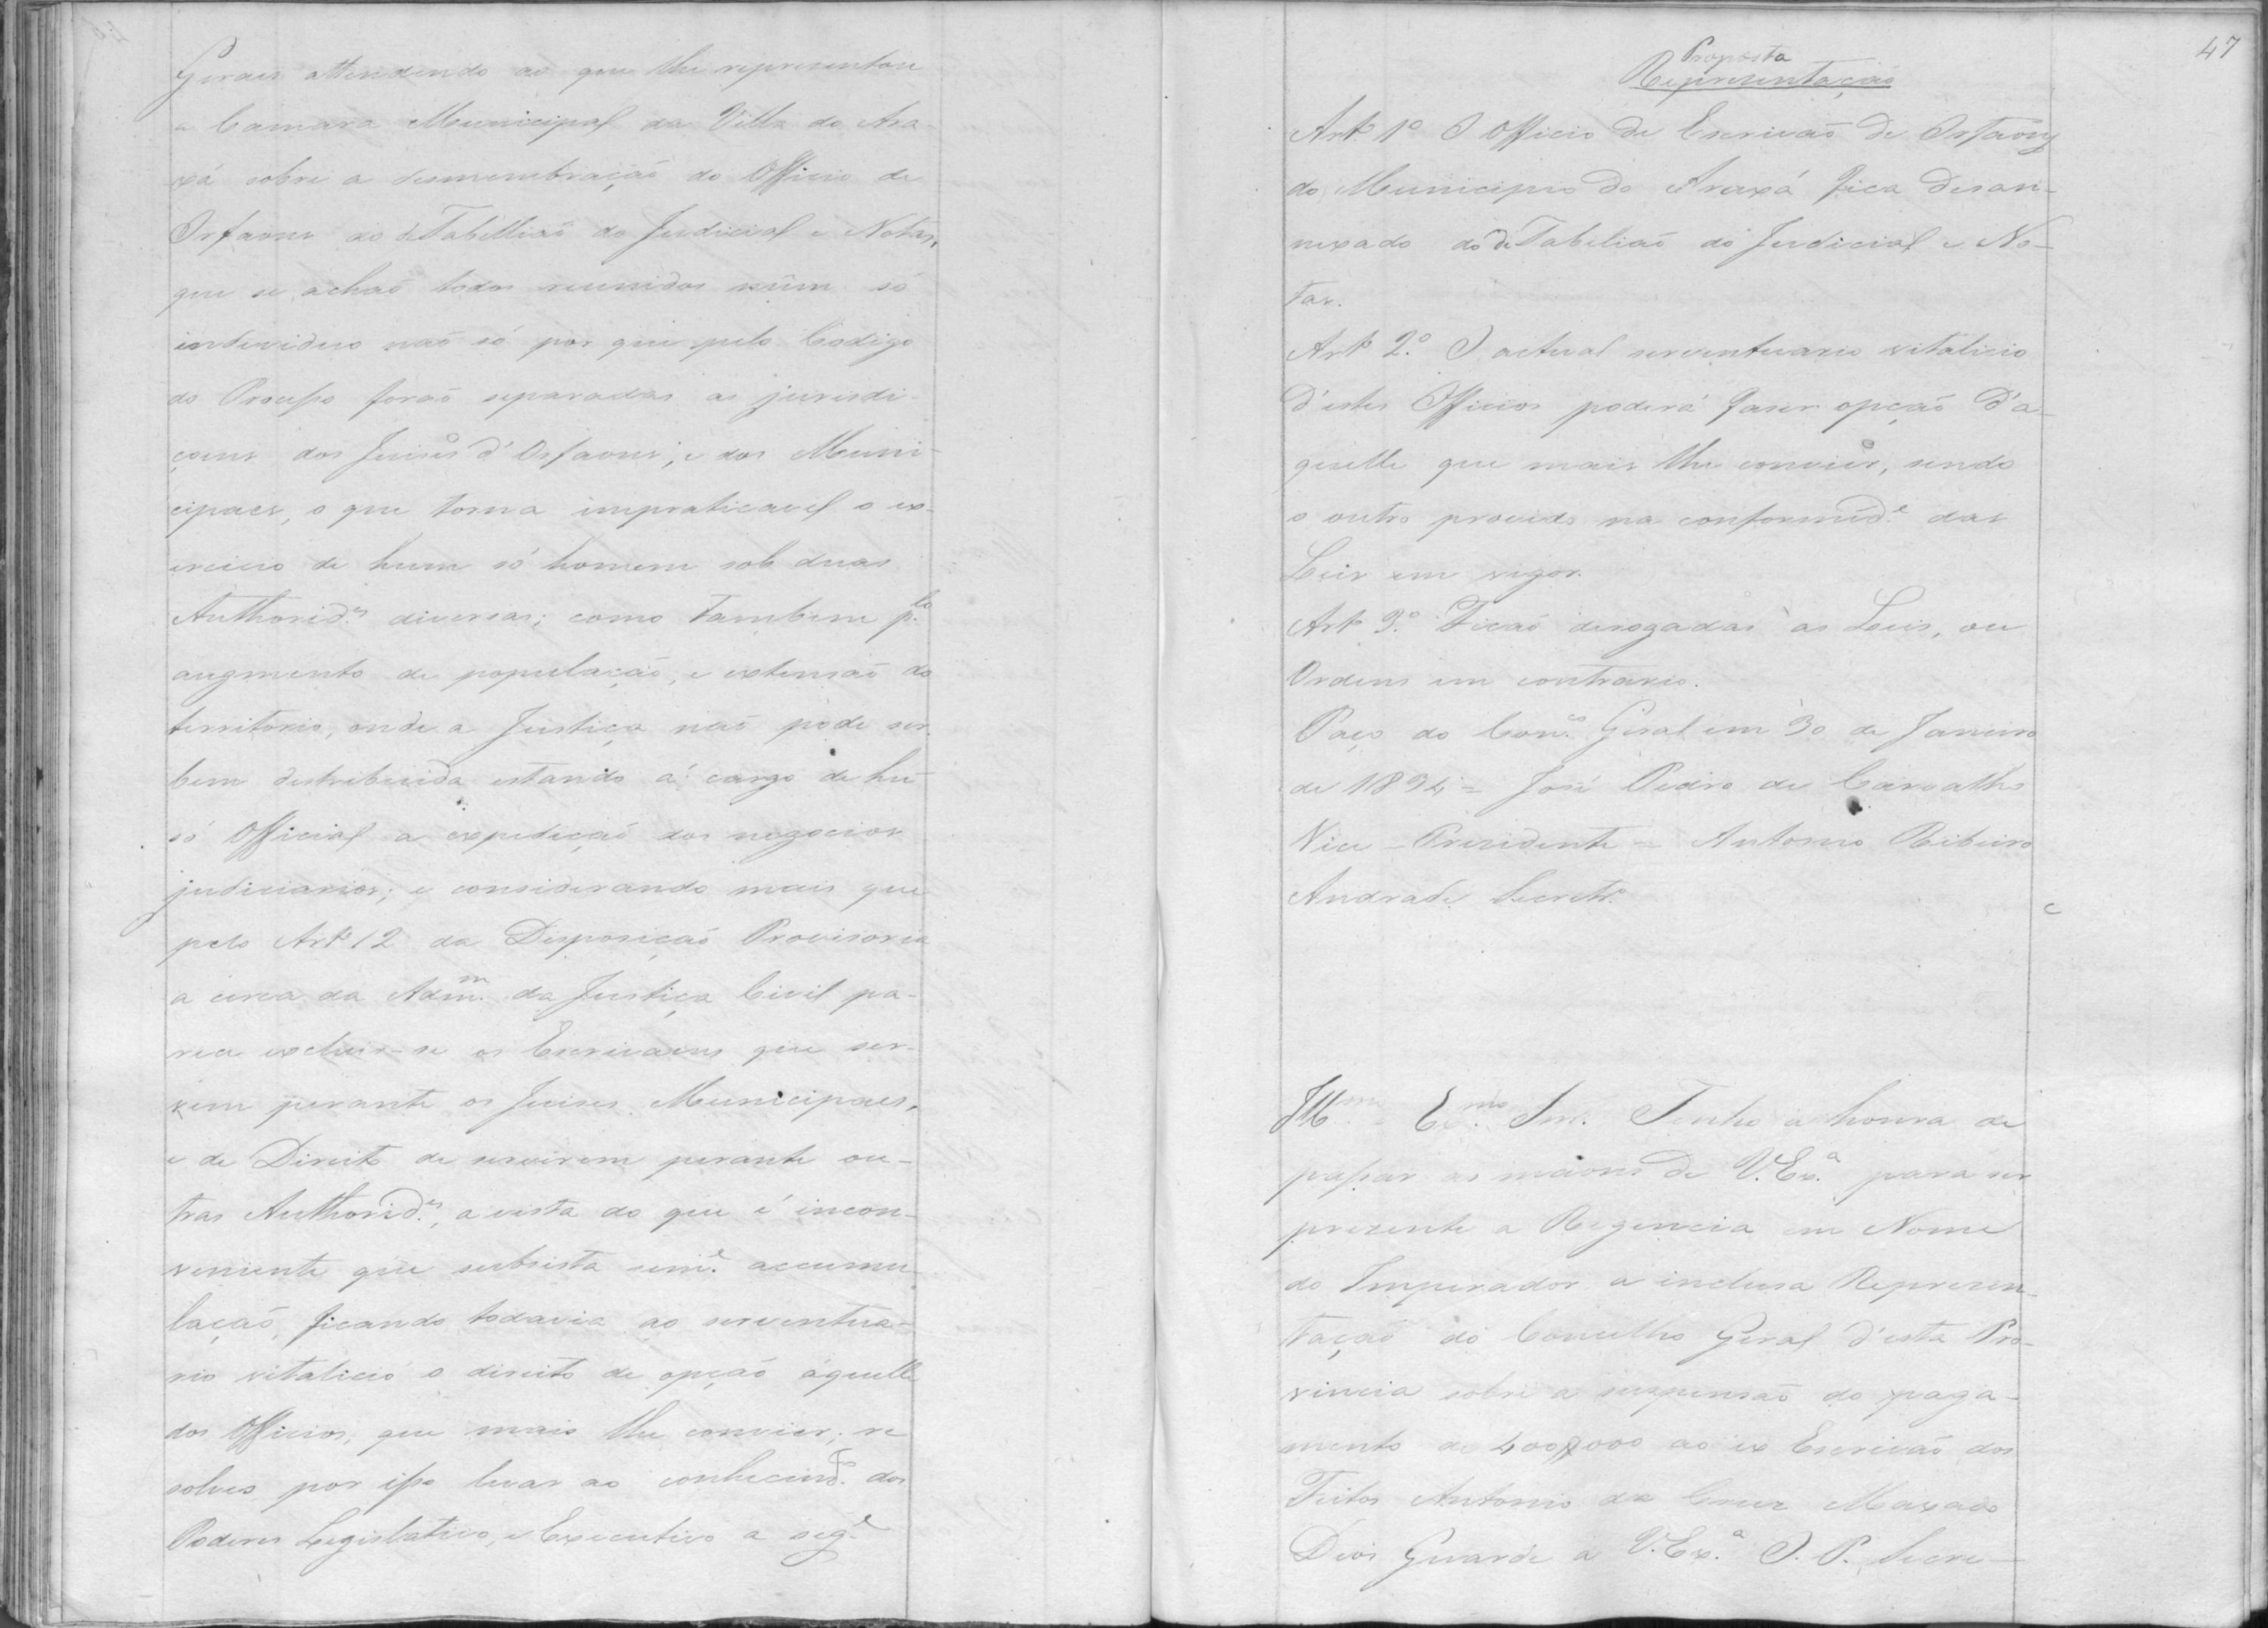 Geraes attendendo ao que lhe representou
a Camara Municipal da Villa do Ara-
xá sobre a desmembração do Officio de
Orfaons do de Tabellião do Judicial e Notas,
que se achaõ todos reunidos n'um só
individuo naõ só por que pelo Codigo
do Processo foraõ separadas as jurisdi-
çoens dos Juises d'Orfaons, e dos Muni-
cipaes, o que torna impraticavel o ex-
ercicio de hum só homem sob duas
Authorid.es diversas; como tambem p.lo
augmento de populaçaõ, e extensaõ do
territorio, onde a Justiça naõ pode ser
bem destribuida estando á cargo de hu
só Official a expediçaõ dos negocios
judiciarios; e considerando mais que
pelo Art.o 12 da Disposiçaõ Provisoria
a cerca da Adm.m da Justiça Civil pa-
rece excluir-se os Escrivaens que ser-
vem perante os Juises Municipaes,
e de Direito de servirem perante ou-
tras Authorid.es, a vista do que é incon-
veniente que subsista sem.e accumu-
laçaõ, ficando todavia ao serventua-
rio vitalicio o direito de opçaõ áquelle
dos Officios, que mais lhe convier; re
solveo por isso levar ao conhecim.to dos
Poderes Legislativo, e Executivo a seg.e
47
Proposta
Representaçaõ
Art.o 1.o O Officio de Escrivaõ de Orfaons
do Municipio do Araxá fica desan-
nexado do de Tabeliaõ do Judicial e No-
tas.
Art.o 2.o O actual serventuario vitalicio
d'estes Officios poderá faser opçaõ d'a-
quelle que mais lhe convier, sendo
o outro provido na conformid.e das
Leis em vigor.
Art.o 3.o Ficaõ derogadas as Leis, ou
Ordens em contrario.
Paço do Con.o Geral em 30 de Janeiro
de 1834 = José Pedro de Carvalho
Vice-Presidente - Antonio Ribeiro
Andrade Secretr.o
Ill.mo Ex.mo Snr. Tenho a honra de
passar as maons de V. Ex.a para ser
prezente a Regencia em Nome
do Imperador a inclusa Represen-
taçaõ do Concelho Geral d'esta Pro-
vincia sobre a suspensaõ do paga-
mento de 400$000 ao ex Escrivaõ dos
Feitos Antonio da Cruz Maxado
Deos Guarde a V. Ex.a O. P. Secre-